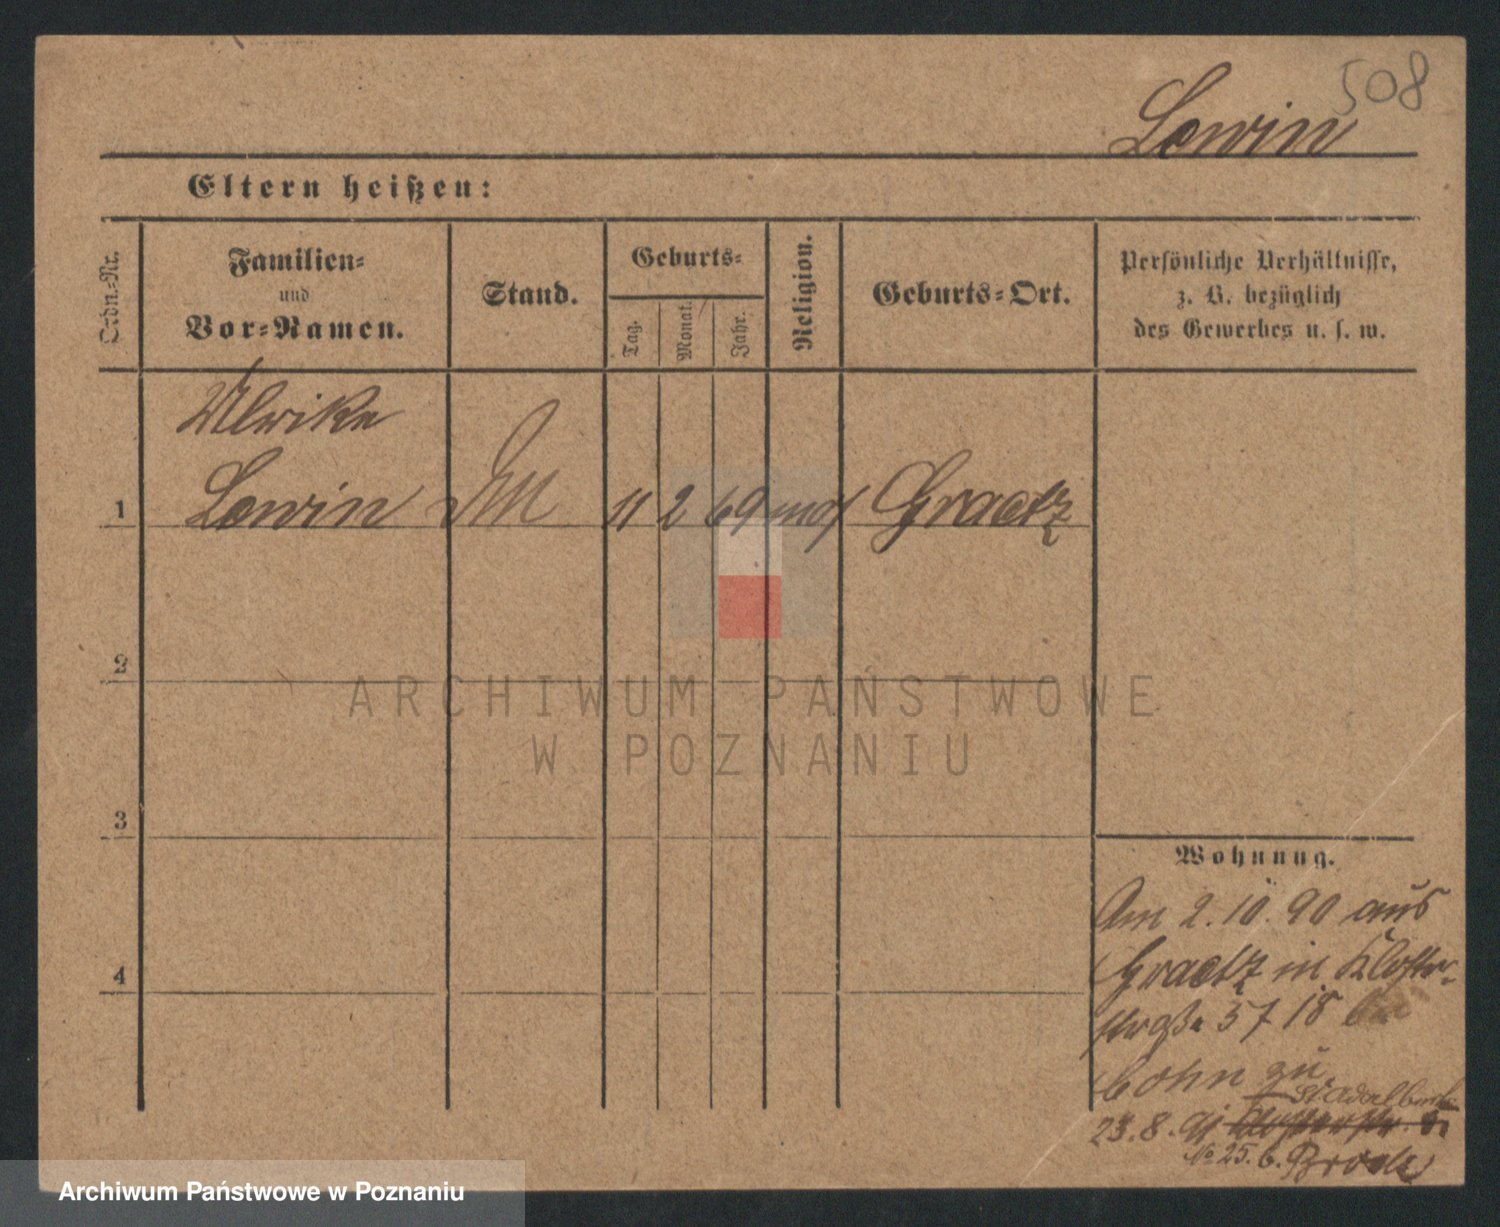 508
Lewin
Eltern heißen:
Ordn.-Nr.
Familien-
und
Vor-Namen.
Stand.
Geburts-
Tag.
Monat.
Jahr.
Religion.
Geburts-Ort.
Persönliche Verhältnisse,
z. B. bezüglich
des Gewerbes u. s. w.
Ulrike
1 Lewin 11 2 69 mos Graetz
2
3
4
Wohnung.
Am 2.10.90 aus
Graetz in Kloster-
straße 57 18 bei
Cohn zu
St Adalbert
23.8.91 Klosterstr.
No 25. b.
ARCHIWUM PAŃSTWOWE
W POZNANIU
Archiwum Państwowe w Poznaniu